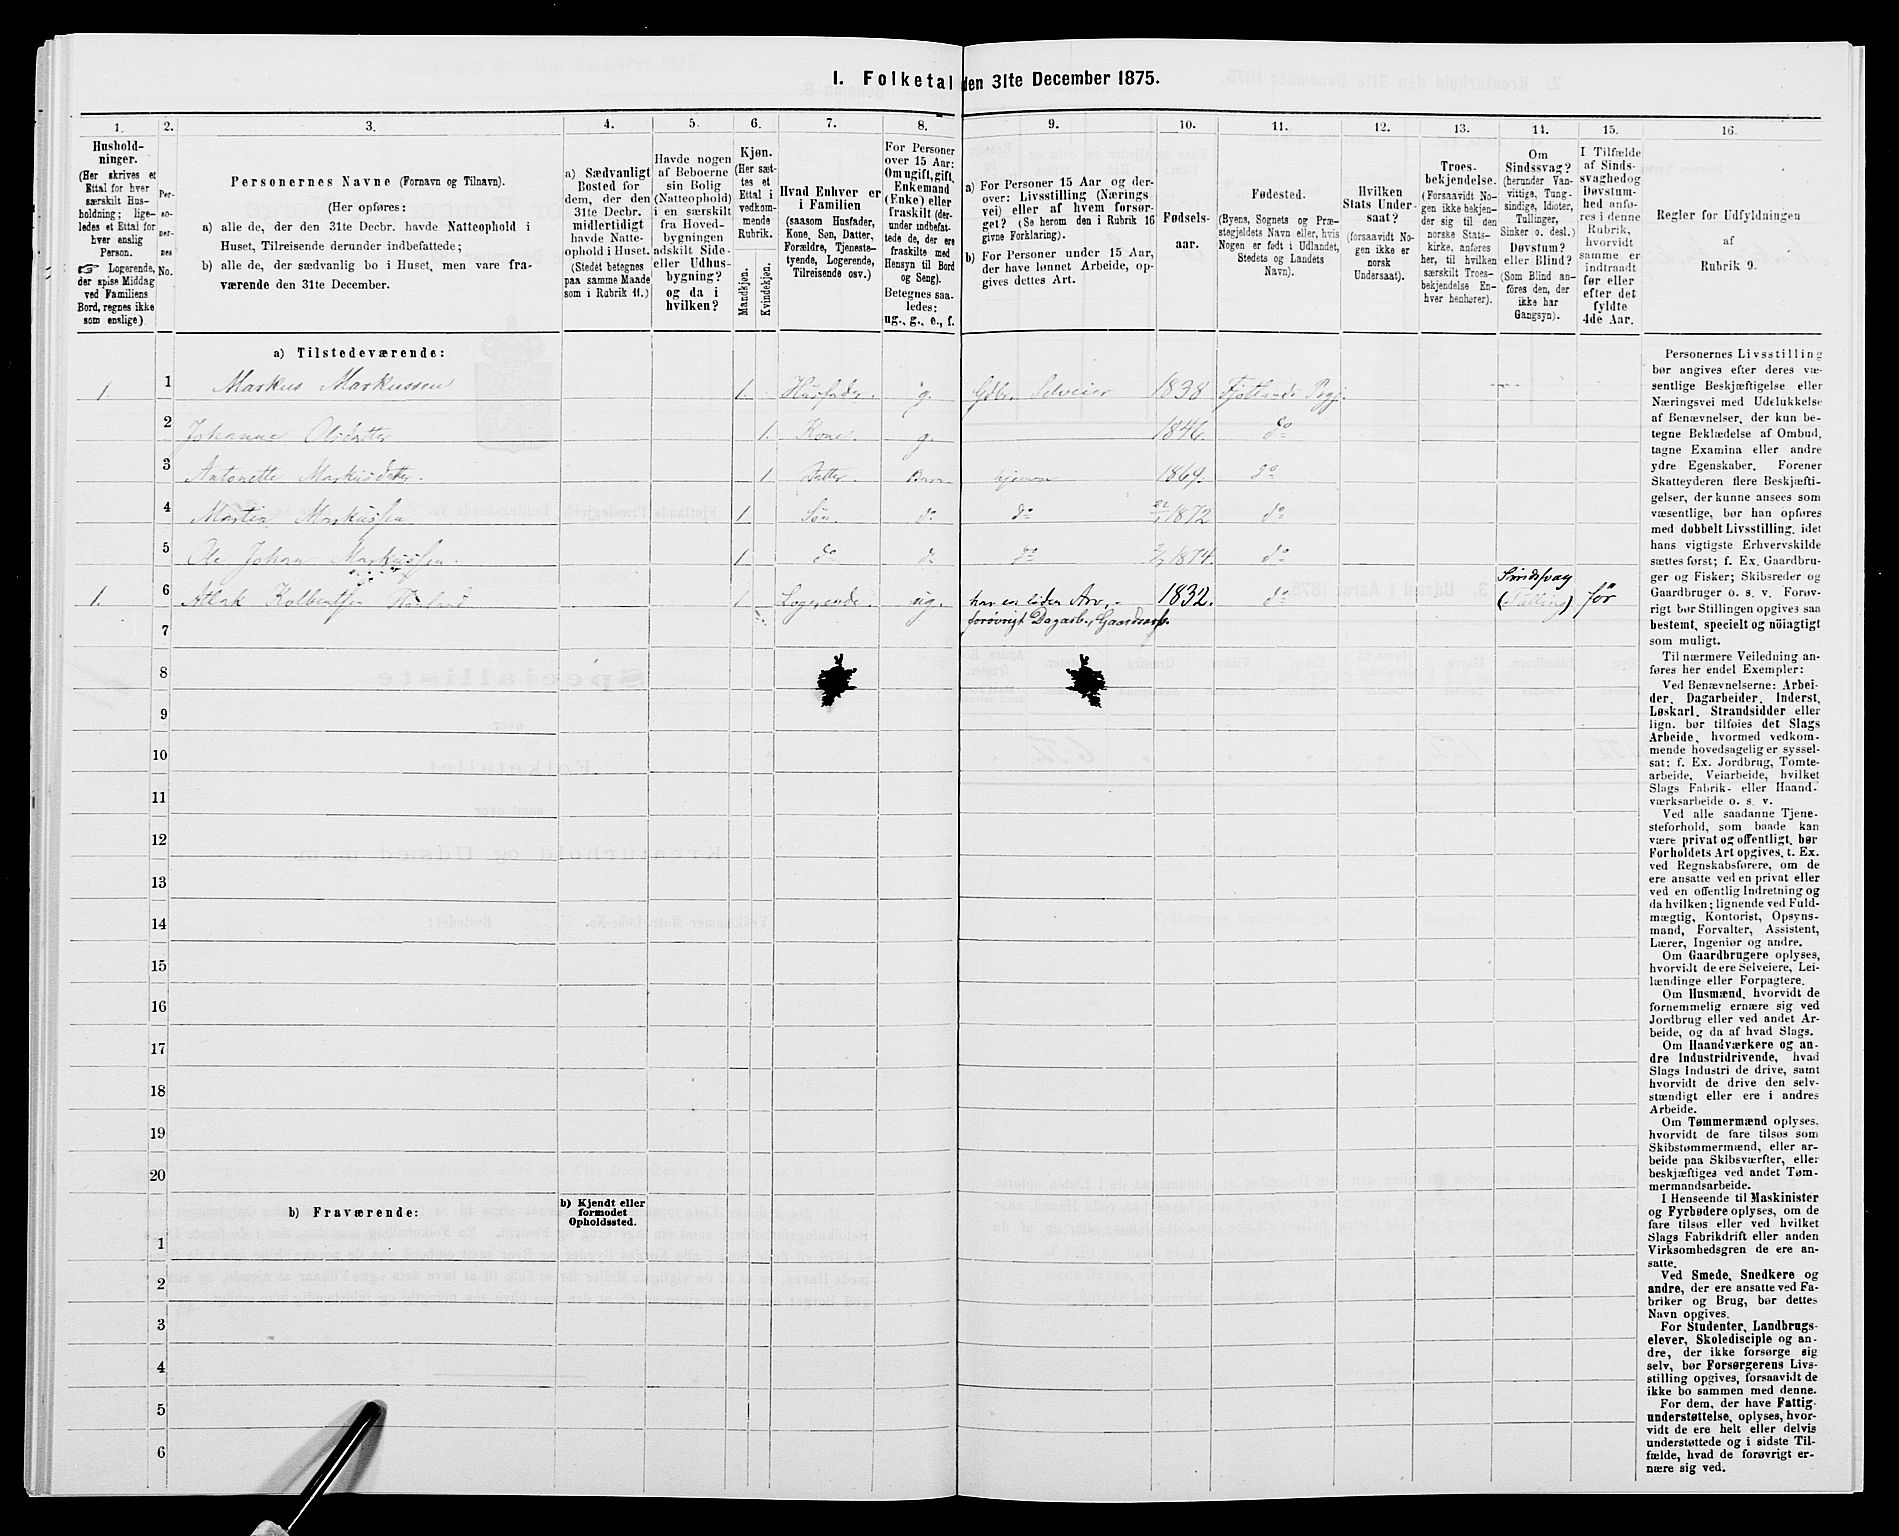 1. Folketal den 31te December 1875.
1.
2.
3.
4.
5.
6.
7.
8.
9.
10.
11.
12.
13.
14.
15.
16.
Hushold-
ninger.
(Her skrives et
Ettal for hver
særskilt Hus-
holdning; lige-
ledes et Ettal for
hver enslig
Person.
☞ Logerende,
der spise Middag
ved Familiens
Bord, regnes ikke
som enslige).
Per-
so-
ner-
nes
No.
Personernes Navne (Fornavn og Tilnavn).
(Her opføres:
a) alle de, der den 31te Decbr. havde Natteophold i
Huset, Tilreisende derunder indbefattede;
b) alle de, der sædvanlig bo i Huset, men vare fra-
værende den 31te December.
a) Sædvanligt
Bosted for
dem, der den
31te Decbr.
midlertidigt
havde Natte-
ophold i Huset.
(Stedet betegnes
paa samme Maade
som i Rubrik 11.)
Havde nogen
af Beboerne
sin Bolig
(Natteophold)
i en særskilt
fra Hoved-
bygningen
adskilt Side-
eller Udhus-
bygning?
og da i
hvilken?
Kjøn.
(Her sæt-
tes et
Ettal i
vedkom-
mende
Rubrik.
Mandkjøn.
Kvindekjøn.
Hvad Enhver er
i Familien
(saasom Husfader,
Kone, Søn, Datter,
Forældre, Tjeneste-
tyende, Logerende,
Tilreisende osv.)
For Personer
over 15 Aar:
Om ugift, gift,
Enkemand
(Enke) eller
fraskilt (der-
under indbefat-
tede de, der ere
fraskilte med
Hensyn til Bord
og Seng).
Betegnes saa-
ledes:
ug., g., e., f.
a) For Personer 15 Aar og der-
over: Livsstilling (Nærings-
vei) eller af hvem forsør-
get? (Se herom den i Rubrik 16
givne Forklaring).
b) For Personer under 15 Aar,
der have lønnet Arbeide, op-
gives dettes Art.
Fødsels-
aar.
Fødested.
(Byens, Sognets og Præ-
stegjeldets Navn eller, hvis
Nogen er født i Udlandet,
Stedets og Landets
Navn).
Hvilken
Stats Under-
saat?
(forsaavidt No-
gen ikke er
norsk
Undersaat).
Troes-
bekjendelse.
(Forsaavidt No-
gen ikke bekjen-
der sig til den
norske Stats-
kirke, anføres
her, til hvilken
særskilt Troes-
bekjendelse En-
hver henhører).
Om
Sindssvag?
(herunder Van-
vittige, Tung-
sindige, Idioter,
Tullinger,
Sinker o. desl.)
Døvstum?
eller Blind?
(Som Blind an-
føres den, der
ikke har
Gangsyn).
I Tilfælde
af Sinds-
svaghed og
Døvstum-
hed anfø-
res i denne
Rubrik,
hvorvidt
samme er
indtraadt
før eller
efter det
fyldte
4de Aar.
Regler for Udfyldningen
af
Rubrik 9.
a) Tilstedeværende:
1. 1 Markus Markussen 1. Husfader. g. Gdbr. Selveier 1838 Fjotlands Prgj.
2 Johanne Olsdatter 1. Kone. g. 1846. do
3 Antonette Markusdatter. 1 Datter. Barn hjemme 1869. do
4 Martin Markussen 1 Søn. do do 1872 do
5 Ole Johan Markussen. 1 do do do 1874. do
1. 6 Atlak Kolbentsen 1 Logerende. ug. har en liden Arv, 1832. do Sindssvag (Tulling) før
7 forøvrigt Dagarb., Gaardsarb.
8
9
10
11
12
13
14
15
16
17
18
19
20
b) Fraværende:
b) Kjendt eller
formodet
Opholdssted.
1
2
3
4
5
6
Personernes Livsstilling
bør angives efter deres væ-
sentlige Beskjæftigelse eller
Næringsvei med Udelukkelse
af Benævnelser, der kun be-
tegne Beklædelse af Ombud,
tagne Examina eller andre
ydre Egenskaber. Forener
Skatteyderen flere Beskjæfti-
gelser, der kunne ansees som
væsentlige, bør han opføres
med dobbelt Livsstilling, idet
hans vigtigste Erhvervskilde
sættes først; f. Ex. Gaardbru-
ger og Fisker; Skibsreder og
Gaardbruger o. s. v. Forøv-
rigt bør Stillingen opgives saa
bestemt, specielt og nöiagtigt
som muligt.
Til nærmere Veiledning an-
føres her endel Exempler:
Ved Benævnelserne: Arbei-
der, Dagarbeider, Inderst,
Løskarl, Strandsidder eller
lign. bør tilføies det Slags
Arbeide, hvormed vedkom-
mende hovedsagelig er syssel-
sat; f. Ex. Jordbrug, Tomte-
arbeide, Veiarbeide, hvilket
Slags Fabrik- eller Haand-
værksarbeide o. s. v.
Ved alle saadanne Tjene-
steforhold, som baade kan
være privat og offentligt, bør
Forholdets Art opgives, t. Ex.
ved Regnskabsførere, om de
ere ansatte ved en privat eller
ved en offentlig Indretning og
da hvilken; lignende ved Fuld-
mægtig, Kontorist, Opsyns-
mand, Forvalter, Assistent,
Lærer, Ingeniør og andre.
Om Gaardbrugere oplyses,
hvorvidt de ere Selveiere, Lei-
lændinge eller Forpagtere.
Om Husmænd, hvorvidt de
fornemmelig ernære sig ved
Jordbrug eller ved andet Ar-
beide, og da af hvad Slags.
Om Haandværkere og an-
dre Industridrivende, hvad
Slags Industri de drive, samt
hvorvidt de drive den selv-
stændigt eller ere i andres
Arbeide.
Om Tømmermænd oplyses,
hvorvidt de fare tilsøs som
Skibstømmermænd, eller ar-
beide paa Skibsværfter, eller
beskjæftiges ved andet Tøm-
mermandsarbeide.
I Henseende til Maskinister
og Fyrbødere oplyses, om de
fare tilsøs eller ved hvilket
Slags Fabrikdrift eller anden
Virksomhedsgren de ere an-
satte.
Ved Smede, Snedkere og
andre, der ere ansatte ved Fa-
briker og Brug, bør dettes
Navn opgives.
For Studenter, Landbrugs-
elever, Skoledisciple og an-
dre, der ikke forsørge sig
selv, bør Forsørgerens Livs-
stilling opgives, forsaavidt de
ikke bo sammen med denne.
For dem, der have Fattig-
understøttelse, oplyses, hvor-
vidt de ere helt eller delvis
understøttede og i sidste Til-
fælde, hvad de forøvrigt er-
nære sig ved.